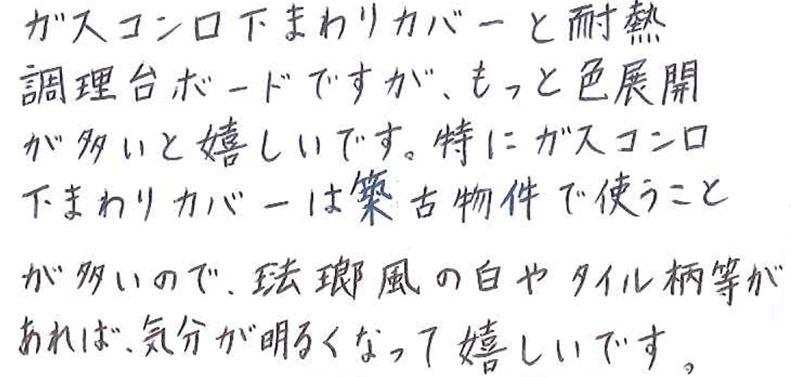 ガスコンロ下まわりカバーと耐熱
調理台ボードですが、もっと色展開
が多いと嬉しいです。特にガスコンロ
下まわりカバーは築古物件で使うこと
が多いので、琺瑯風の白やタイル柄等が
あれば、気分が明るくなって嬉しいです。